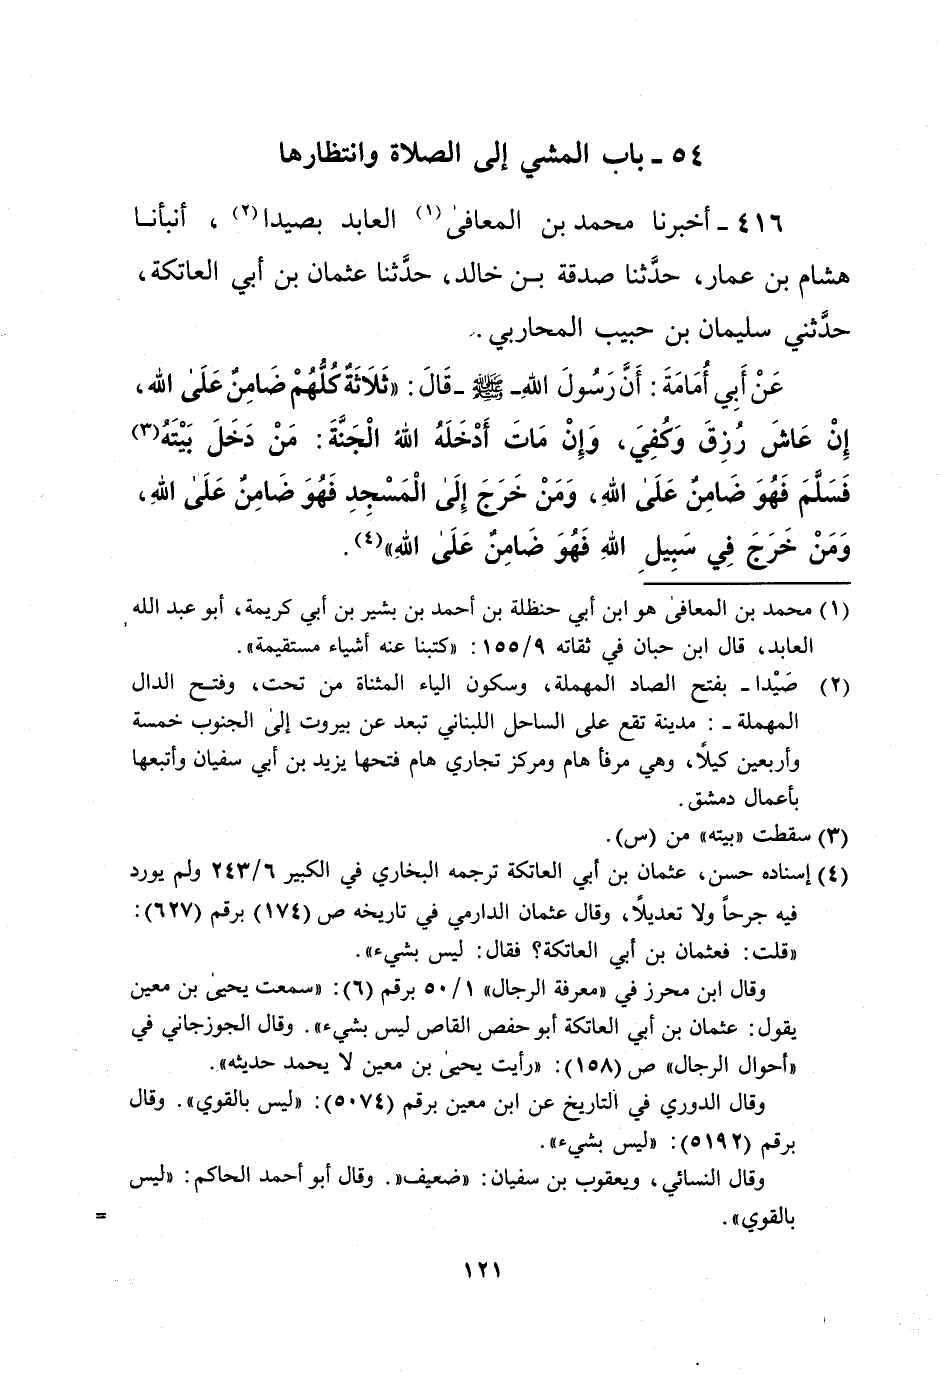 ٥٤ ـ باب المشي إلى الصلاة وانتظارها
٤١٦ ـ أخبرنا محمد بن المعافىٰ(١) العابد بصيدا(٢) ، أنبأنا
هشام بن عمار، حدَّثنا صدقة بن خالد، حدَّثنا عثمان بن أبي العاتكة،
حدَّثني سليمان بن حبيب المحاربي .
عَنْ أَبِي أُمَامَةَ : أَنَّ رَسُولَ اللهِ ـ ﷺ ـ قَالَ : «ثَلَاثَةٌ كُلُّهُمْ ضَامِنٌ عَلَىٰ اللهِ ،
إِنْ عَاشَ رُزِقَ وَكُفِيَ، وَإِنْ مَاتَ أَدْخَلَهُ اللهُ الْجَنَّةَ : مَنْ دَخَلَ بَيْتَهُ(٣)
فَسَلَّمَ فَهُوَ ضَامِنٌ عَلَىٰ اللهِ، وَمَنْ خَرَجَ إِلَىٰ الْمَسْجِدِ فَهُوَ ضَامِنٌ عَلَىٰ اللهِ،
وَمَنْ خَرَجَ فِي سَبِيلِ اللهِ فَهُوَ ضَامِنٌ عَلَىٰ اللهِ»(٤) .
(١) محمد بن المعافىٰ هو ابن أبي حنظلة بن أحمد بن بشير بن أبي كريمة، أبو عبد الله
العابد، قال ابن حبان في ثقاته ١٥٥/٩ : «كتبنا عنه أشياء مستقيمة».
(٢) صَيْدا ـ بفتح الصاد المهملة، وسكون الياء المثناة من تحت، وفتح الدال
المهملة ـ : مدينة تقع على الساحل اللبناني تبعد عن بيروت إلىٰ الجنوب خمسة
وأربعين كيلاً، وهي مرفأ هام ومركز تجاري هام فتحها يزيد بن أبي سفيان وأتبعها
بأعمال دمشق .
(٣) سقطت «بيته» من (س).
(٤) إسناده حسن، عثمان بن أبي العاتكة ترجمه البخاري في الكبير ٢٤٣/٦ ولم يورد
فيه جرحاً ولا تعديلاً، وقال عثمان الدارمي في تاريخه ص (١٧٤) برقم (٦٢٧) :
«قلت : فعثمان بن أبي العاتكة؟ فقال : ليس بشيء» .
وقال ابن محرز في «معرفة الرجال» ٥٠/١ برقم (٦) : «سمعت يحيىٰ بن معين
يقول : عثمان بن أبي العاتكة أبو حفص القاص ليس بشيء» . وقال الجوزجاني في
«أحوال الرجال» ص (١٥٨) : «رأيت يحيىٰ بن معين لا يحمد حديثه» .
وقال الدوري في التاريخ عن ابن معين برقم (٥٠٧٤) : «ليس بالقوي» . وقال
برقم (٥١٩٢) : «ليس بشيء» .
وقال النسائي، ويعقوب بن سفيان : «ضعيف» . وقال أبو أحمد الحاكم : «ليس
بالقوي» . =
١٢١